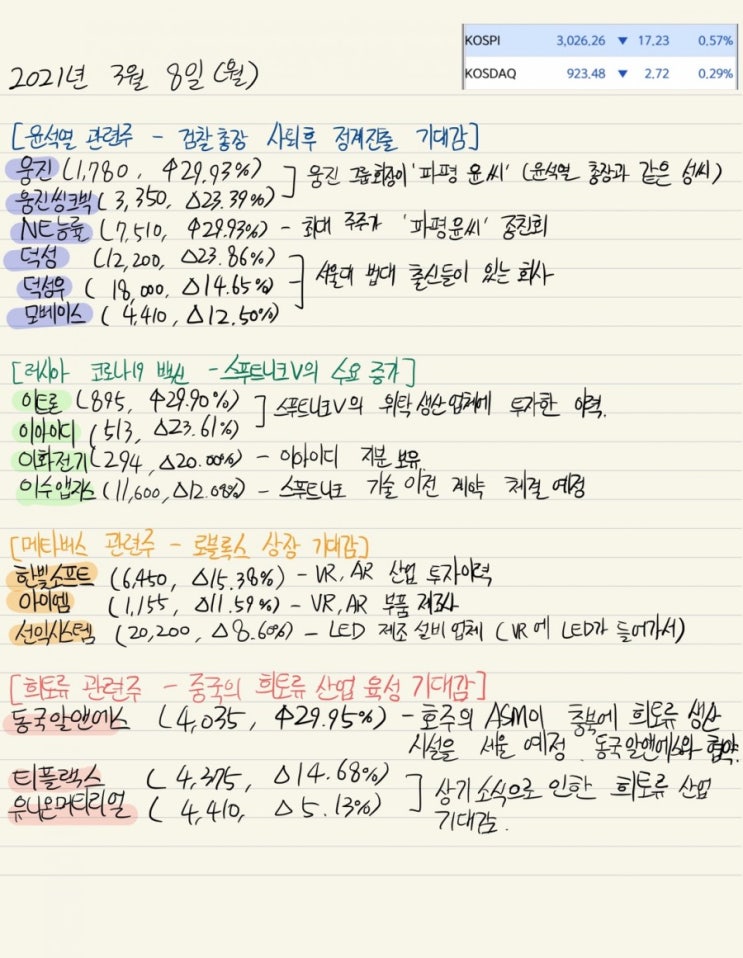 KOSPI 3,026.26 ▼ 17.23 0.57%
KOSDAQ 923.48 ▼ 2.72 0.29%
2021년 3월 8일 (월)
[윤석열 관련주 - 검찰총장 사퇴후 정계진출 기대감]
웅진 (1,780, ↑29.93%)
웅진씽크빅 (3,350, △23.39%)
] 웅진 그룹회장이 '파평 윤씨' (윤석열 총장과 같은 성씨)
NE능률 (7,510, ↑29.93%) - 최대 주주가 '파평윤씨' 종친회
덕성 (12,200, △23.86%)
덕성우 (18,000, △14.65%)
모베이스 (4,410, △12.50%)
] 서울대 법대 출신들이 있는 회사
[러시아 코로나19 백신 - 스푸트니크V의 수요 증가]
이트론 (895, ↑29.90%)
이아이디 (513, △23.61%)
] 스푸트니크V의 위탁생산업체에 투자한 이력.
이화전기 (294, △20.00%) - 이아이디 지분 보유.
이수앱지스 (11,600, △12.08%) - 스푸트니크 기술 이전 계약 체결 예정
[메타버스 관련주 - 로블록스 상장 기대감]
한빛소프트 (6,450, △15.38%) - VR, AR 산업 투자이력
아이엠 (1,155, △11.59%) - VR, AR 부품 제조사
선익시스템 (20,200, △8.60%) - LED 제조 설비 업체 (VR에 LED가 들어가서)
[희토류 관련주 - 중국의 희토류 산업 육성 기대감]
동국알앤에스 (4,035, ↑29.95%) - 호주의 ASM이 충북에 희토류 생산
시설을 세울 예정. 동국알앤에스와 협약.
티플랙스 (4,375, △14.68%)
유니온머티리얼 (4,410, △5.13%)
] 상기 소식으로 인한 희토류 산업
기대감.